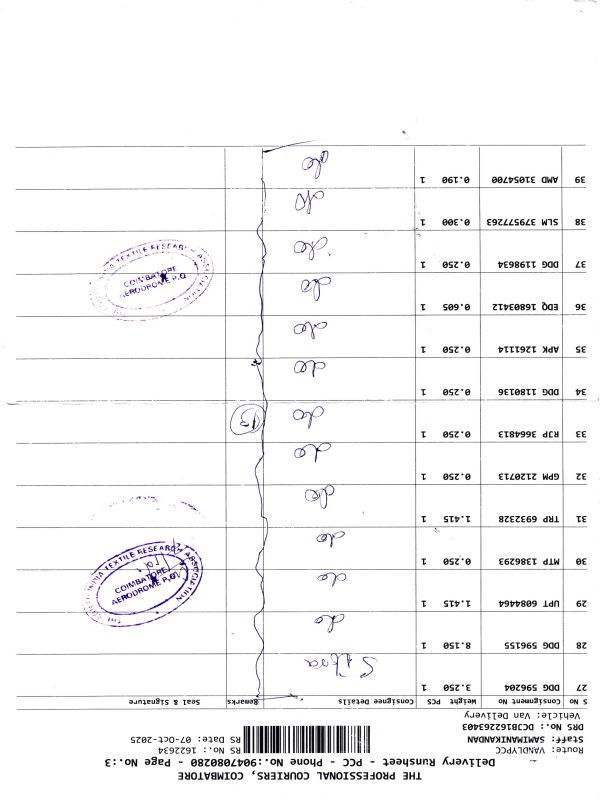 THE PROFESSIONAL COURIERS, COIMBATORE
Delivery Runsheet - PCC - Phone No.:9047080280 - Page No.:3
Route: VANDLYPCC
Staff: SAMIMANIKANDAN RS No.: 1622634
DRS No.: DCJB16226J403 RS Date: 07-Oct-2025
Vehicle: Van Delivery
S No Consignment No Weight PCS Consignee Details Remarks Seal & Signature
27 DDG 596204 3.250 1 Sitra
28 DDG 596155 8.150 1 do
29 UPT 6084464 1.415 1 do
30 MTP 1386293 0.250 1 do
31 TRP 6932328 1.415 1 do
32 GPM 2120713 0.250 1 do
33 RJP 3664813 0.250 1 do 13
34 DDG 1180136 0.250 1 do
35 APK 1261114 0.250 1 do
36 EDQ 16803412 0.605 1 do
37 DDG 1198634 0.250 1 do
38 SLM 379577263 0.300 1 do
39 AMD 31054700 0.190 1 do
THE SOUTH INDIA TEXTILE RESEARCH ASSOCIATION
COIMBATORE
AERODROME P.O
INDIA TEXTILE RESEARCH ASSOCIATION
COIMBATORE
AERODROME P.O